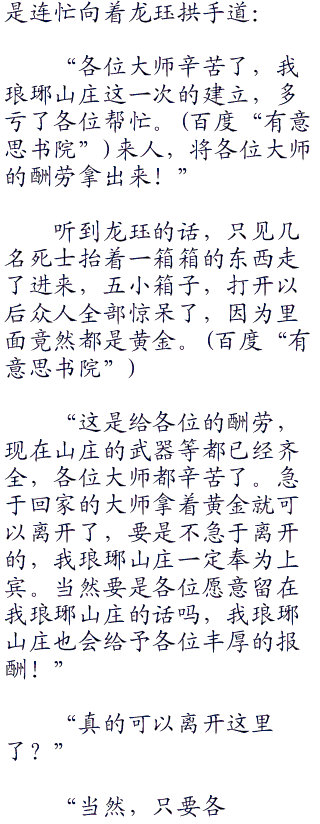 是连忙向着龙珏拱手道：
“各位大师辛苦了，我
琅琊山庄这一次的建立，多
亏了各位帮忙。(百度“有意
思书院”)来人，将各位大师
的酬劳拿出来！”
听到龙珏的话，只见几
名死士抬着一箱箱的东西走
了进来，五小箱子，打开以
后众人全部惊呆了，因为里
面竟然都是黄金。(百度“有
意思书院”)
“这是给各位的酬劳，
现在山庄的武器等都已经齐
全，各位大师都辛苦了。急
于回家的大师拿着黄金就可
以离开了，要是不急于离开
的，我琅琊山庄一定奉为上
宾。当然要是各位愿意留在
我琅琊山庄的话吗，我琅琊
山庄也会给予各位丰厚的报
酬！”
“真的可以离开这里
了？”
“当然，只要各